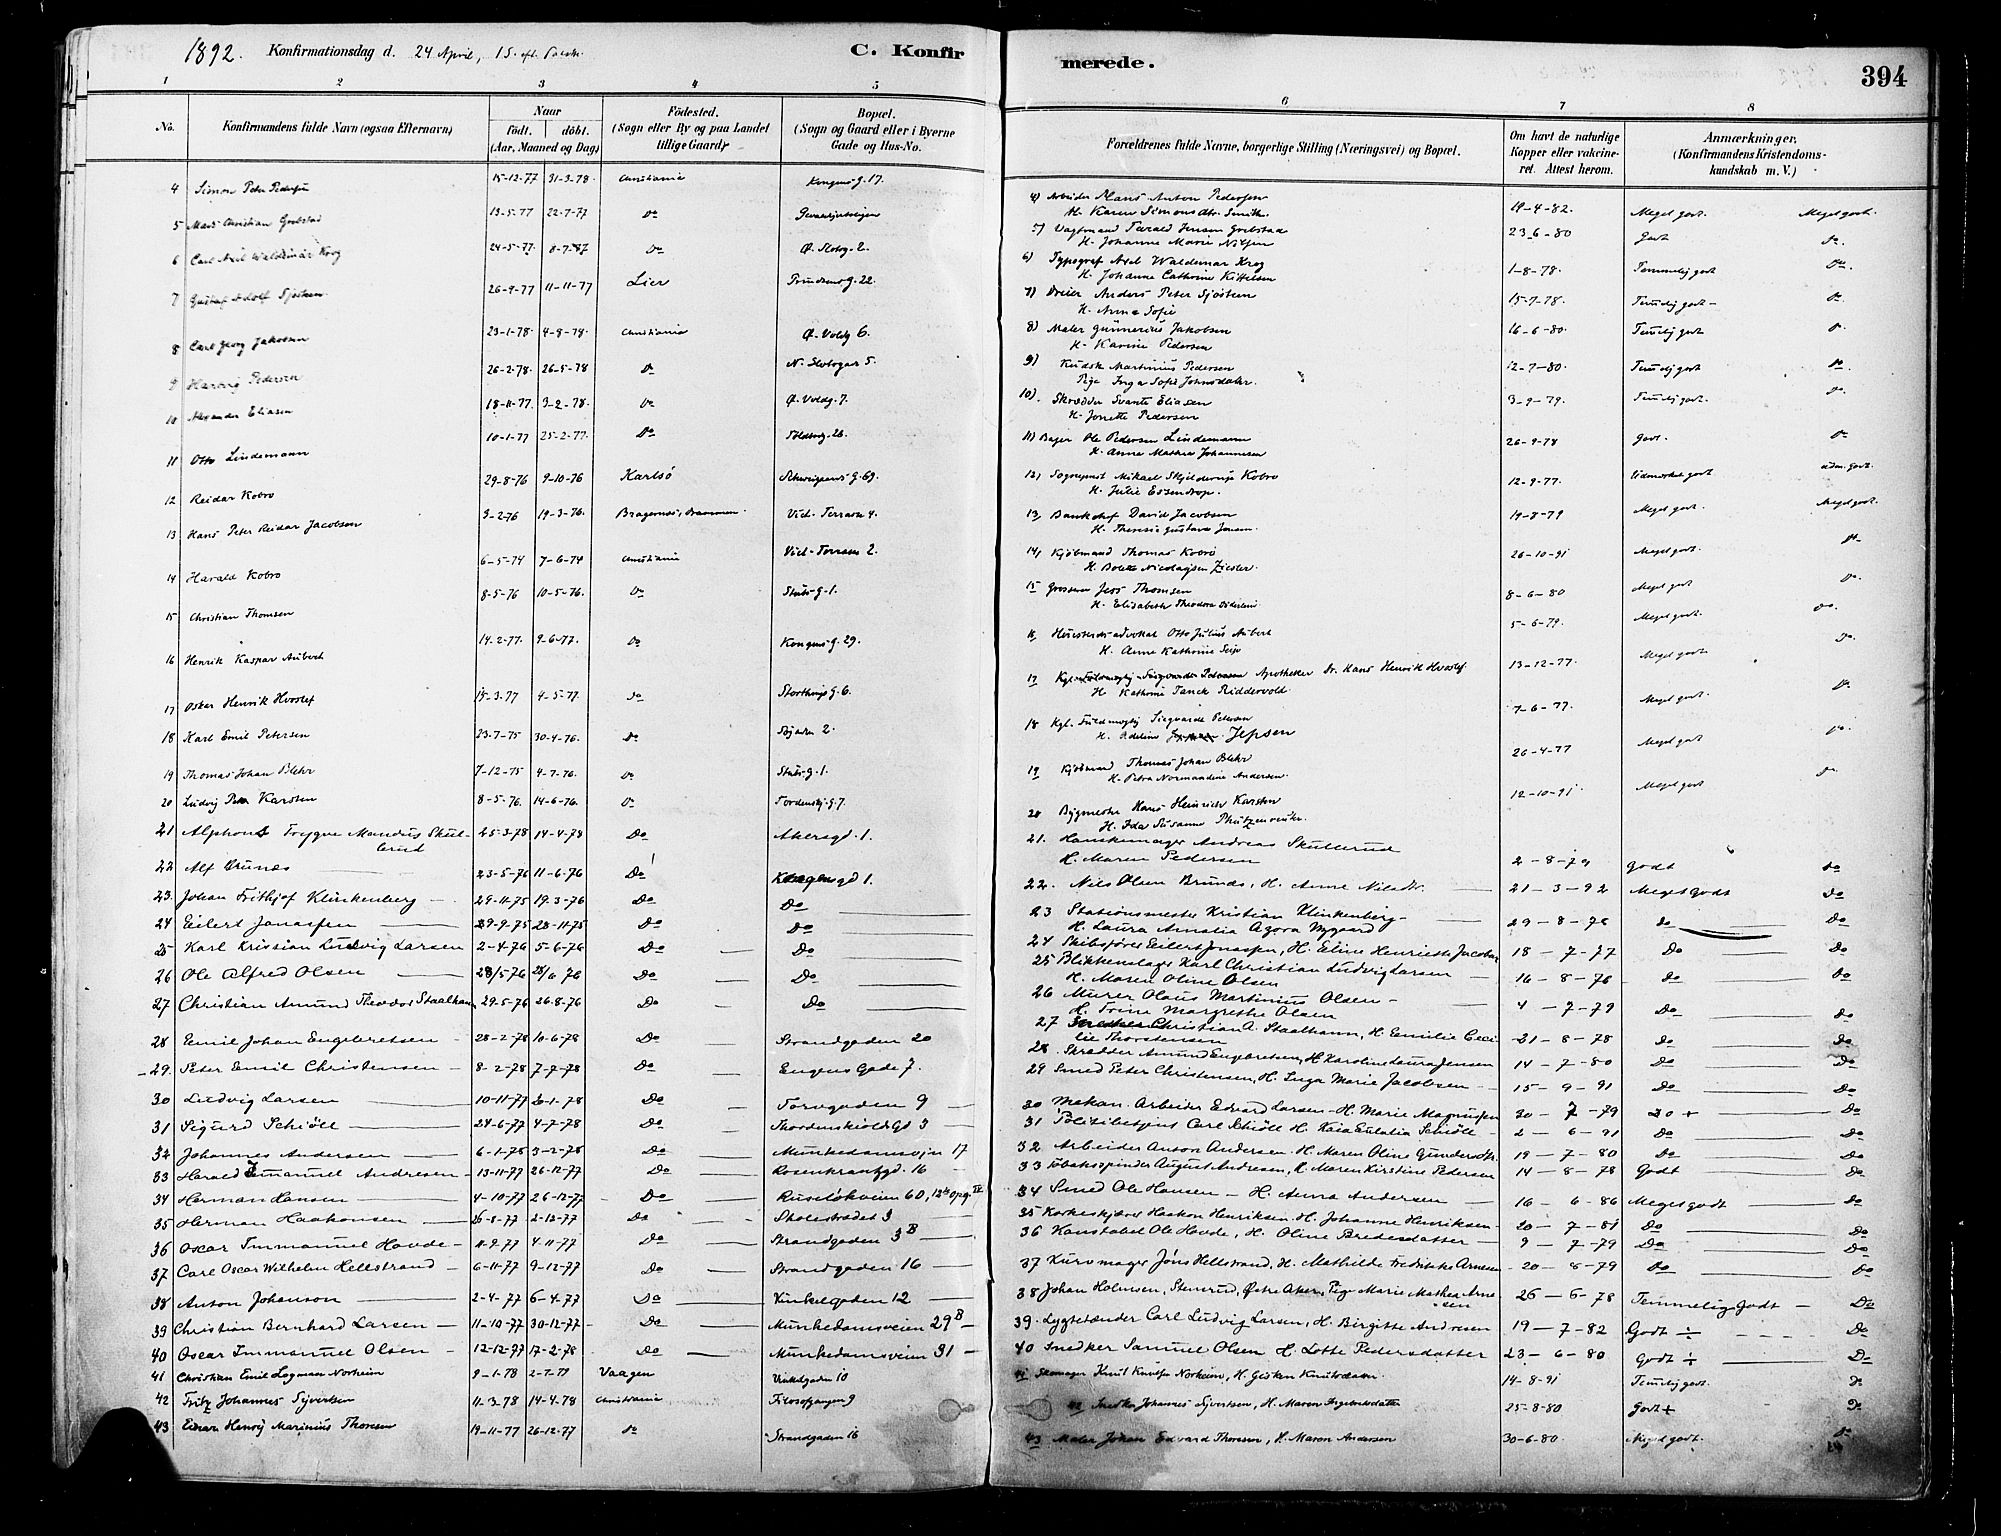 1892. Konfirmationsdag d. 24 April, 1S. eft. Paaske.
C. Konfirmerede.
394
1 2 3 4 5 6 7 8
No.
Konfirmandens fulde Navn (ogsaa Efternavn)
Naar
födt. döbt.
(Aar, Maaned og Dag)
Födested.
(Sogn eller By og paa Landet tillige Gaard)
Bopæl.
(Sogn og Gaard eller i Byerne Gade og Hus-No.
Forældrenes fulde Navne, borgerlige Stilling (Næringsvei) og Bopæl.
Om havt de naturlige Kopper eller vakcineret. Attest herom.
Anmærkninger,
(Konfirmandens Kristendomskundskab m. V.)
4 Simon Peter Pedersen 15-12-77 31-3-78. Christiania Kongens-G. 17.
4) Arbeider Hans Anton Pedersen
H. Karen Simonsdtr. Smith. 19-4-82. Meget godt. Meget godt.
5 Christian Grebstad 13-5-77 22-7-77 Do
5) Vagtmand Tarald Jensen Grebstad
H. Johanne Marie Nilsen 23-6-80 Godt Do.
6 Carl Axel Waldemar Krog 24-5-77. 8-7-87 Do Ø. Slotsg. 2.
6) Typograf Axel Waldemar Krog
H. Johanne Cathrine Kittelsen 1-8-78. Temmelig godt Do.
7 Gustaf Adolf Sjösteen 26-9-77 11-11-77 Lier G. 22.
7) Dreier Anders Peter Sjösteen
H. Anna Sofie 15-7-78. Temmelig godt- Do
8 Carl Georg Jakobsen 23-1-78 4-8-78. Christiania Ø. Voldg 6.
8) Maler Gunnerius Jakobsen
H. Karine Pedersen 16-6-80. Temmelig godt Do
9 Harvig Pedersen 26-2-78. 26-5-78 Do N. Slotsgad 5.
9) Kudsk Martinius Pedersen
Pige Inga Sofie Johnsdatter. 12-7-80. Temmelig godt Do
10 Alexander Eliasen 18-11-77 3-2-78. Do Ø. Voldg. 7.
10). Skrædder Svante Eliasen
H. Jonette Pedersen 3-9-79. Temmelig godt. Do
11 Otto Lindemann 10-1-77 25-2-77. Do Toldbodg. 26.
11) Bager Ole Pedersen Lindemann
H. Anna Mathea Johannesen 26-9-78 godt. Do
12 Reidar Kobro 29-8-76 9-10-76 Karlsö Schweigaards-G. 69.
12) Sogneprest Mikael Skjelderup Kobro
H. Julie Essendrop. 12-9-77. Udmærket godt Udm. godt.
13 Hans Peter Reidar Jacobsen 3-2-76 19-3-76. Bragernes, Drammen. Vict. Terrasse 4.
13) Bankchef David Jacobsen
H. Theresie Gustava Jensen 19-8-79 Meget godt. Meget godt.
14 Harald Kobro 6-5-74 7-6-74 Christiania Vict. Terrasse 2.
14) Kjöbmand Thomas Kobro
H. Bolette Nicolaysen Ziesler. 26-10-91 Meget godt. Do
15 Christian Thomsen 8-5-76 10-5-76. Do Stubs-G. 1.
15 Grosserer Jess Thomsen
H. Elisabeth Theodora 8-6-80 Meget godt Do.
16 Henrik Kaspar Aubert 14-2-77. 9-6-77. Do Kongens-G. 29.
16 Höiesteretsadvokat Otto Julius Aubert
H. Anne Kathrine Seip 5-6-79. Meget godt. Do.
17 Oskar Henrik Hvoslef 15-3-77 4-5-77. Do Storthings G. 6.
17 Apotheker Dr. Hans Henrik Hvoslef
H. Kathrine Tanck Riddervold. 13-12-77. Meget godt Do.
18 Karl Emil Petersen 23-7-75 30-4-76. Do 2.
18 Kgl. Fuldmægtig Siegvardt Petersen
H. Adeline Jepsen 7-6-77. Meget godt. Do
19 Thomas Johan Blehr 7-12-75 4-7-76. Do Stubs-G. 1.
19 Kjöbmand Thomas Johan Blehr
H. Petra Normandine Andersen. 26-4-77 Meget godt Do.
20 Ludvig Peter Karsten 8-5-76. 14-6-76. Do Tordenskj.-G. 7.
20 Bygmester Hans Heinrich Karsten
H. Ida Susanne 12-10-91 Meget godt Do
21 Alphons Trygve Mandus Skullerud 25-3-78 14-4-78 Do Akersgd. 1.
21. Handskemager Andreas Skullerud
H. Maren Pedersen 2-8-79 godt Do
22 Alf Brunæs 23-5-76 11-6-76 Do gd 1.
22. Nils Olsen Brunæs, H. Anne Nilsdtr. 21-3-92 Meget godt Do
23. Johan Frithjof Klinkenberg 29-11-75 19-3-76 Do Do
23 Stationsmester Kristian Klinkenberg-
H. Laura Amalia Agora Nygaard 29-8-76 Do Do
24 Eilert Jonassen 29-9-75 28-11-75 Do Do
24 Skibsförer Eilert Jonassen, H. Eline Henriette Jacobsen 18-7-77 Do Do
25 Karl Kristian Ludvig Larsen 2-4-76 5-6-76 Do Do
25 Blikkenslager Karl Christian Ludvig Larsen
H. Maren Oline Olsen 16-8-76 Do Do
26 Ole Alfred Olsen 28/5 76 25/6 76 Do Do
26 Murer Olaus Martinius Olsen-
H. Trine Margrethe Olsen 4-7-79 Do Do
27 Christian Amund Theodor Staalham 29-5-76 26-8-76 Do Do
27 Snedker Christian A. Staalhamm, H. Emilie Cecilie Thorstensen 21-8-78 Do Do
28 Emil Johan Engebretsen 28-2-78 10-6-78 Do Strandgaden 20
28. Skrædder Amund Engebretsen, H. Karoline Laura Jensen 14-7-80 Do Do
29. Peter Emil Christensen 8-2-78 7-7-78 Do Eugens Gade 7.
29 Smed Peter Christensen, H. Inga Marie Jacobsen 15-9-91 Do Do
30 Ludvig Larsen 10-11-77 20-1-78 Do Torvgaden 9
30 Mekan. Arbeider Edvard Larsen-H. Marie Magnussen 30-7-79 Do + Do
31 Sigurd Schiöll 24-6-77 4-7-78 Do Thordenskiolds Gd 3
31 Politibetjent Carl Schiöll H. Kaia Eulalia Schiöll 2-6-91 Do Do
32 Johannes Andersen 6-1-78 3-2-78 Do Munkedamsvejen 17
32 Arbeider Anton Andersen. H. Maren Oline Gundersdtr. 19-7-80 Do Do
33 Harald Emanuel Andresen 13-11-77 26-12-77 Do Rosenkrantzgd. 16
33 Tobaksspinder August Andresen, H. Maren Kirstine Pedersen 14-8-78 Godt Do
34 Herman Hansen 4-10-77 26-12-77 Do Ruselökveien 60, 12te opg. IV
34 Smed Ole Hansen-H. Anna Andersen 16 6-86 Meget godt Do
35 Herman Haakonsen 26-8-77 2-12-77 Do Skolestrædet 3
35 Korkeskjærer Haakon Henriksen, H. Johanne Henriksen- 20-7-81 Do Do
36 Oscar Immanuel Hovde- 11-9-77 4-11-77 Do Strandgaden 3B
36 Konstabel Ole Hovde, H. Oline Bredesdatter 9-7-79 Do Do
37 Carl Oscar Wilhelm Hellstrand 6-11-77 9-12-77 Do Strandgaden 16
37 Kurvmager Jöns Hellstrand, H. Mathilde Fredrikke Arnesen 20-8-79 Do Do
38 Anton Johanson 2-4-77 6-4-77 Do Vinkelgaden 12
38 Johan Holmsen, Stensrud, Østre Aker, Pige Marie Mathea Arnesen 26-6-78 Temmelig godt - Do
39 Christian Bernhard Larsen 11-10-77 30-12-77 Do Munkedamsveien 29B
39. Lygtetænder Carl Ludvig Larsen, H. Birgitte Andresen 19-7-82 Godt ÷ Do
40 Oscar Immanuel Olsen 12-12-77 17-2-78 Do Munkedamsveien 31
40 Snedker Samuel Olsen H. Lotte Pedersdatter 23-6-80 Godt ÷ Do
41 Christian Emil Norheim 9-1-78 2-7-79 Vaagen Vinkelgaden 10
41 Skomager Knut Knutsen Norheim, H. Gjöken Knutsdatter. 14-8-91 Temmelig godt. Do
42 Fritz Johannes Syvertsen 11-3-78 14-4-78 Christiania Filosofgangen 9
42 Snedker Johannes Syvertsen, H. Maren Ingebretsdatter 25-8-80 Godt + Do
43 Einar Henry Marinius Thoresen 19-11-77 26-12-77 Do Strandgaden 16
43 Maler Johan Edvard Thoresen, H. Maren Andersen 30-6-80. Meget godt. Do